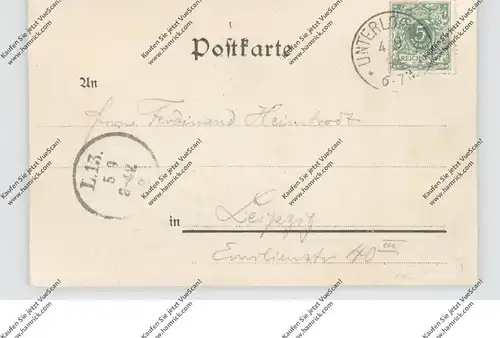 Postkarte
UNTERLO
4 9
6-7N.
5
REICHSPOST
An
Herrn Ferdinand Heimbrodt
L.13.
5 9
8-9V.
in Leipzig
Emilienstr 40 III
Kaufen Sie jetzt VueScan!
www.hamrick.com